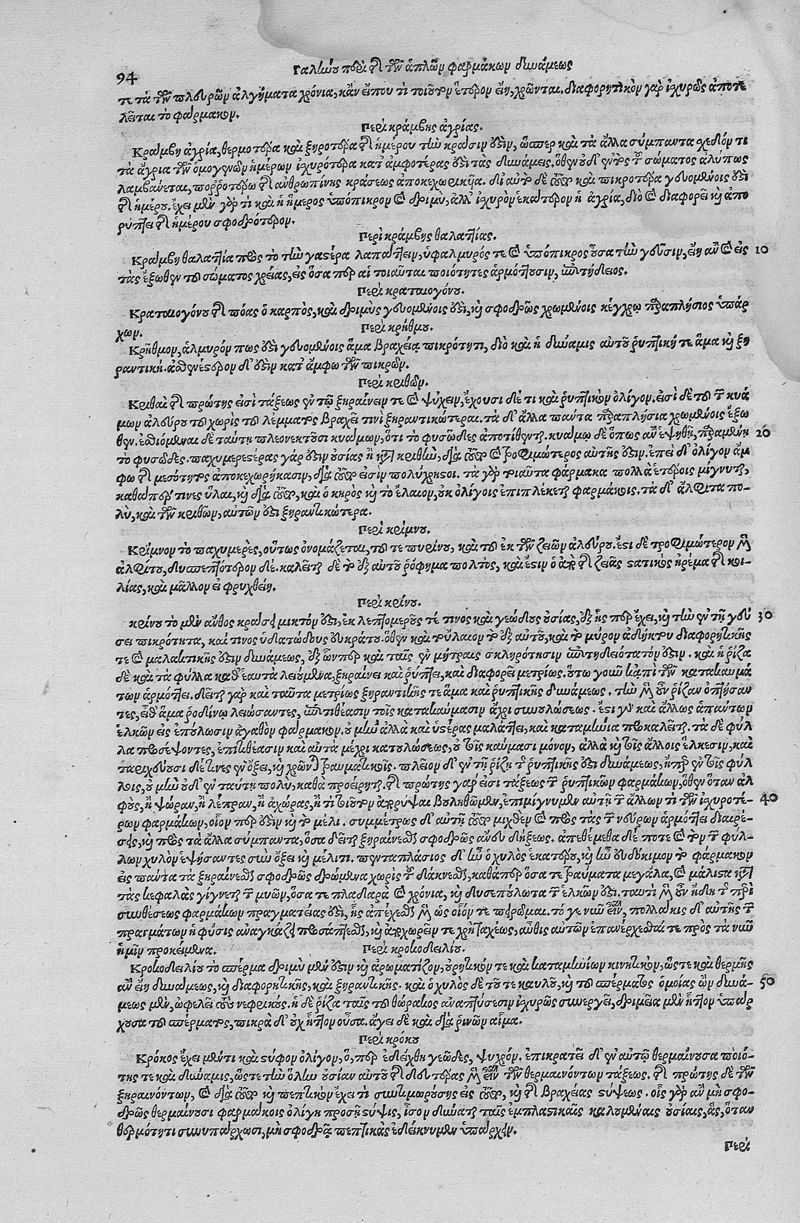 94 Γαληνοῦ περὶ τῆς τῶν ἁπλῶν φαρμάκων δυνάμεως
τε τὰ τῶν πλευρῶν ἀλγήματα χρόνια, κἂν εἴπου τι τοιοῦτον ἕτερον εἴη, χρῶνται. διαφορητικὸν γὰρ ἰχυρῶς ἀποτε
λεῖται τὸ φάρμακον.
Περὶ κράμβης ἀγρίας.
Κράμβη ἀγρία, θερμοτέρα καὶ ξηροτέρα τῆς ἡμέρου τὴν κρᾶσιν ἐστὶν, ὥσπερ καὶ τὰ ἄλλα σύμπαντα σχεδόν τι
τὰ ἄγρια τῶν ὁμογενῶν ἡμέρων ἰχυρότερα κατ' ἀμφοτέρας ἐστὶ τὰς δυνάμεις. ὅθεν οὐδ' ἐντὸς τοῦ σώματος ἀλύπως
λαμβάνεται, πορρωτέρω τῆς ἀνθρωπίνης κράσεως ἀποκεχωρηκυῖα. διὰ αὐτὸ δὲ τοῦτο καὶ πικροτέρα γευομένοις ἐστὶ
τῆς ἡμέρου. ἔχει μὲν γάρ τι καὶ ἡ ἥμερος ὑπόπικρον καὶ δριμὺ, ἀλλ' ἰχυρὸν ἑκάτερον ἡ ἀγρία, διὸ καὶ διαφορεῖ καὶ ἀπο
ρύπτει τῆς ἡμέρου σφοδρότερον.
Περὶ κράμβης θαλαττίας.
Κράμβη θαλαττία πρὸς τὸ τὴν γαστέρα λαπάττειν, ὑφαλμυρός τε καὶ ὑπόπικρος οὖσα τὴν γεῦσιν, εἴη ἂν καὶ εἰς 10
τὰς ἔξωθεν τοῦ σώματος χρείας, εἰς ὅσα περ αἱ τοιαῦται ποιότητες ἁρμόττουσιν, ἐπιτήδειος.
Περὶ κραταιογόνου.
Κραταιογόνου τῆς πόας ὁ καρπὸς, καὶ δριμὺς γευομένοις ἐστὶ, καὶ σφοδρῶς χρωμένοις κέγχρῳ παραπλήσιος ὑπάρ
χων.
Περὶ κρήθμου.
Κρῆθμον, ἁλμυρόν πως ἐστὶ γευομένοις ἅμα βραχείᾳ πικρότητι, διὸ καὶ ἡ δύναμις αὐτοῦ ῥυπτική τε ἅμα καὶ ξη
ραντική. ἀσθενέστερον δ' ἐστὶν κατ' ἄμφω τῶν πικρῶν.
Περὶ κριθῶν.
Κριθαὶ τῆς πρώτης εἰσὶ τάξεως ἐν τῷ ξηραίνειν τε καὶ ψύχειν, ἔχουσι δέ τι καὶ ῥυπτικὸν ὀλίγον. εἰσὶ δὲ τοῦ τῶν κυά
μων ἀλεύρου τοῦ χωρὶς τοῦ λέμματος βραχεῖ τινι ξηραντικώτεραι. τὰ δ' ἄλλα πάντα παραπλήσια χρωμένοις ἔξω
θεν. ἐσθιόμεναι δὲ ταύτῃ πλεονεκτοῦσι κυάμων, ὅτι τὸ φυσῶδες ἀποτίθενται. κυάμῳ δὲ ὅπως ἂν ἑψηθῇ, παραμένει 20
τὸ φυσῶδες. παχυμερεστέρας γάρ ἐστιν οὐσίας ἢ κατὰ κριθὴν, διὰ τοῦτο καὶ τροφιμώτερος αὐτῆς ἐστιν. ἐπεὶ δ' ὀλίγον ἄμ
φω τῆς μεσότητος ἀποκεχωρήκασιν, διὰ τοῦτο εἰσιν πολύχρηστοι. τὰ γὰρ τοιαῦτα φάρμακα πολλὰ ἑτέροις μίγνυται,
καθάπερ τινες ὗλαι, καὶ διὰ τοῦτο, καὶ ὁ κηρὸς καὶ τὸ ἔλαιον, οὐκ ὀλίγοις ἐπιπλέκεται φαρμάκοις. τὰ δ' ἄλφιτα πο
λὺ, καὶ τῶν κριθῶν, αὐτῶν ἐστι ξηραντικώτερα.
Περὶ κρίμνου.
Κρίμνον τὸ παχυμερὲς, οὕτως ὀνομάζεται, τοῦ τε πυρίνου, καὶ τοῦ ἐκ τῶν ζειῶν ἀλεύρου. ἔστι δὲ τροφιμώτερον μὲν
ἀλφίτου, δυσπεπτότερον δέ. καλεῖται δὲ τὸ ἐξ αὐτοῦ ῥόφημα πολτὸς, καὶ ἔστιν ὁ ἀπὸ τῆς ζειᾶς στατικὸς ἠρέμα τῆς κοι
λίας, καὶ μᾶλλον εἰ φρυχθείη.
Περὶ κρίνου.
κρίνου τὸ μὲν ἄνθος κράσει μικτόν ἐστι, ἐκ λεπτομεροῦς τέ τινος καὶ γεώδους οὐσίας, ἐξ ἧς περ ἔχει, καὶ τὴν ἐν τῇ γεύ 30
σει πικρότητα, καί τινος ὑδατώδους εὐκράτου. ὅθεν καὶ τοὔλαιον τὸ ἐξ αὐτοῦ, καὶ τὸ μύρον ἀδήκτου διαφορητικῆς
τε καὶ μαλακτικῆς ἐστιν δυνάμεως, ἐξ ὧνπερ καὶ ταῖς ἐν μήτραις σκληρότησιν ἐπιτηδειότατόν ἐστιν. καὶ ἡ ῥίζα
δὲ καὶ τὰ φύλλα καθ' ἑαυτὰ λειούμενα, ξηραίνει καὶ ῥύπτει, καὶ διαφορεῖ μετρίως. οὕτω γοῦν κἀπὶ τῶν κατακαυμά
των ἁρμόττει. δεῖται γὰρ καὶ ταῦτα μετρίως ξηραντικῆς τε ἅμα καὶ ῥυπτικῆς δυνάμεως. τὴν μὲν οὖν ῥίζαν ὀπτήσαν
τες, εἶθ' ἅμα ῥοδίνῳ λειώσαντες, ἐπιτιθέασιν τοῖς κατακαύμασιν ἄχρι συνουλώσεως. ἔστι γὰρ καὶ ἄλλως ἁπάντων
ἑλκῶν εἰς ἐπούλωσιν ἀγαθὸν φάρμακον. οὐ μὴν ἀλλὰ καὶ ὑστέρας μαλάττει, καὶ καταμήνια προκαλεῖται. τὰ δὲ φύλ
λα προσέψοντες, ἐπιτιθέασιν καὶ αὐτὰ μέχρι κατουλώσεως, οὐ τοῖς καύμασι μόνον, ἀλλὰ καὶ τοῖς ἄλλοις ἕλκεσιν, καὶ
ταριχεύουσι δέ τινες ἐν ὄξει, καὶ χρῶνται τραυματικοῖς. πλεῖον δ' ἐν τῇ ῥίζῃ τὸ ῥυπτικῆς ἐστι δυνάμεως, ἤπερ ἐν τοῖς φύλ
λοις, οὐ μὴν οὐδ' ἐν ταύτῃ πολὺ, καθὰ προείρηται. τῆς πρώτης γάρ εἰσι τάξεως τῶν ῥυπτικῶν φαρμάκων, ὅθεν ὅταν ἀλ
φοὺς, ἢ ψώραν, ἢ λέπραν, ἢ ἀχώρας, ἤ τι τοιοῦτον ἀπορρύψαι βουληθῶμεν, ἐπιμίγνυμεν αὐτῇ τῶν ἄλλων τι τῶν ἰχυροτέ- 40
ρων φαρμάκων, οἷον πέρ ἐστιν καὶ τὸ μέλι. συμμέτρως δ' αὐτῇ τοῦτο μιχθὲν καὶ πρὸς τὰς τῶν νεύρων ἁρμόττει διαιρέ-
σεις, καὶ πρὸς τὰ ἄλλα σύμπαντα, ὅσα δεῖται ξηραίνεσθαι σφοδρῶς ἄνευ δήξεως. ἀπεθέμεθα δέ ποτε καὶ τὸν τῶν φύλ-
λων χυλὸν ἑψήσαντες σὺν ὄξει καὶ μέλιτι. πενταπλάσιος δ' ἦν ὁ χυλὸς ἑκατέρου, καὶ ἦν εὐδόκιμον τὸ φάρμακον
εἰς πάντα τὰ ξηραίνεσθαι σφοδρῶς δεόμενα χωρὶς τοῦ δάκνεσθαι, καθάπερ ὅσα τε τραύματα μεγάλα, καὶ μάλιστα κατὰ
τὰς κεφαλὰς γίγνεται τῶν μυῶν, ὅσα τε πλαδαρὰ καὶ χρόνια, καὶ δυσεπούλωτα τῶν ἑλκῶν ἐστι. ταυτὶ μὲν οὖν ἤδη τῆς περὶ
συνθέσεως φαρμάκων πραγματείας ἐστὶ, ἧς ἀπέχεσθαι μὲν ὡς οἷόν τε πειρῶμαι. τό γε νῦν εἶναι, πολλάκις δ' αὐτῆς τῶν
πραγμάτων ἡ φύσις ἀναγκάζει προσάπτεσθαι, καὶ ἀρχωρεῖν τε χρὴ ταχέως, αὖθις αὐτῶν ἐπανέρχεσθαί τε πρὸς τὰ νῦν
ἡμῖν προκείμενα.
Περὶ κροκοδειλίου.
Κροκοδειλίου τὸ σπέρμα δριμὺ μέν ἐστιν καὶ ἀρωματίζον, οὐρητικόν τε καὶ καταμηνίων κινητικὸν, ὥστε καὶ θερμῆς
ἂν εἴη δυνάμεως, καὶ διαφορητικῆς, καὶ ξηραντικῆς. καὶ ὁ χυλὸς δὲ τοῦ τε καυλοῦ, καὶ τοῦ σπέρματος ὁμοίας ὢν δυνά- 50
μεως μὲν, ὠφελεῖ τοὺς νεφριτικούς. ἡ δὲ ῥίζα ταῖς τοῦ θώρακος ἀναπτύσεσιν ἰχυρῶς συνεργεῖ, δριμεῖα μὲν ἧττον ὑπάρ
χουσα τοῦ σπέρματος, πικρὰ δ' οὐχ ἧττον οὖσα. ἄγει δὲ καὶ διὰ ῥινῶν αἷμα.
Περὶ κρόκου
Κρόκος ἔχει μέντι καὶ στῦφον ὀλίγον, ὅ, περ ἐδείχθη γεῶδες, ψυχρόν. ἐπικρατεῖ δ' ἐν αὐτῷ θερμαίνουσα ποιό-
της τε καὶ δύναμις, ὥστε τὴν ὅλην οὐσίαν αὐτοῦ τῆς δευτέρας μὲν εἶναι τῶν θερμαινόντων τάξεως. τῆς πρώτης δὲ τῶν
ξηραινόντων, καὶ διὰ τοῦτο καὶ πεπτικὸν ἔχει τι συνημμένον εἰς τοῦτο, καὶ τῆς βραχείας στύψεως. οἷς γὰρ ἂν μὴ σφο-
δρῶς θερμαίνουσι φαρμάκοις ὀλίγη προσῇ στύψις, ἴσον δύναται ταῖς ἐμπλαστικαῖς καλουμέναις οὐσίαις, ἃς, ὅταν
θερμότητι συνυπάρχωσι, μὴ σφοδρᾷ πεπτικὰς ἐδείκνυμεν ὑπάρχειν.
Περὶ